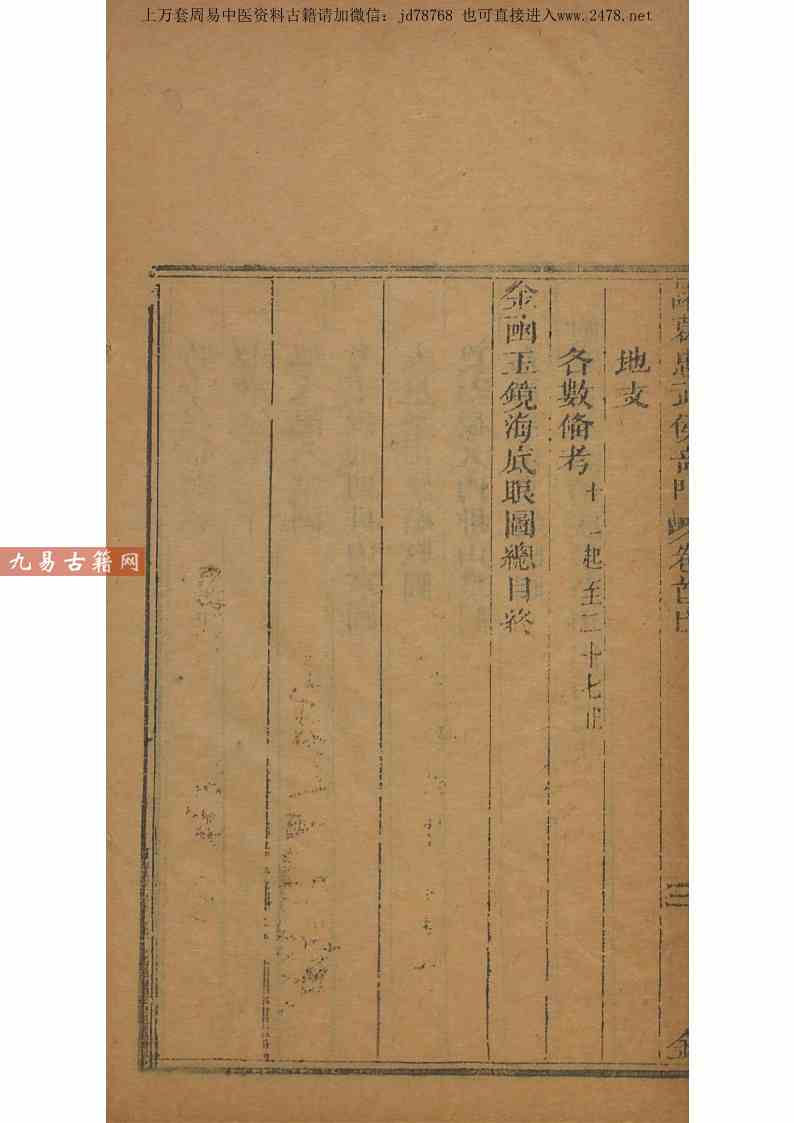 上万套周易中医资料古籍请加微信：jd78768 也可直接进入www.2478.net
地支
各數俻考 十二起至二十七止
金函玉鏡海底眼圖總目終
三
九易古籍网